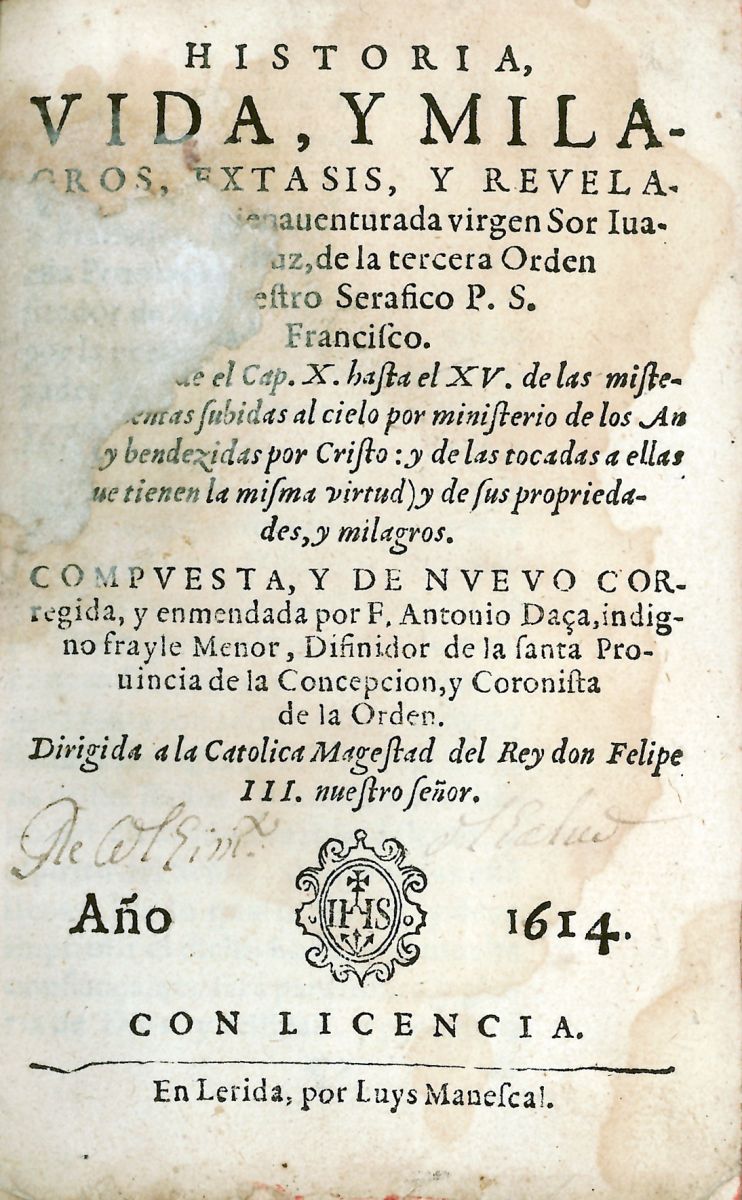 HISTORIA,
VIDA, Y MILA-
GROS, EXTASIS, Y REVELA-
auenturada virgen Sor Iua-
uz, de la tercera Orden
estro Serafico P. S.
Franciſco.
de el Cap. X. haſta el XV. de las miſte-
ſubidas al cielo por miniſterio de los An
y bendezidas por Criſto: y de las tocadas a ellas
ue tienen la miſma virtud) y de ſus proprieda-
des, y milagros.
COMPVESTA, Y DE NVEVO COR-
regida, y enmendada por F. Antonio Daça, indig-
no frayle Menor, Difinidor de la ſanta Pro-
uincia de la Concepcion, y Coroniſta
de la Orden.
Dirigida a la Catolica Mageſtad del Rey don Felipe
III. nueſtro ſeñor.
IHS
Año 1614.
CON LICENCIA.
En Lerida, por Luys Maneſcal.